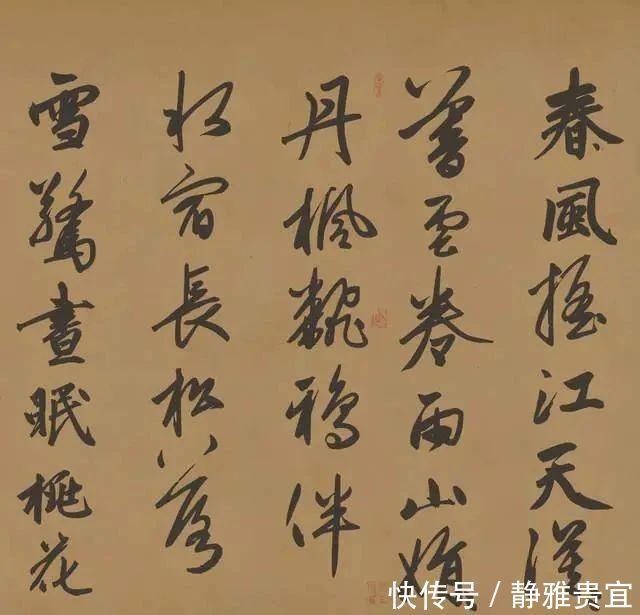 春風搖江天漠
暮雲卷雨山娟
丹楓翻鴉伴
水宿長松落
雪驚晝眠桃花
快传号 / 静雅贵宜